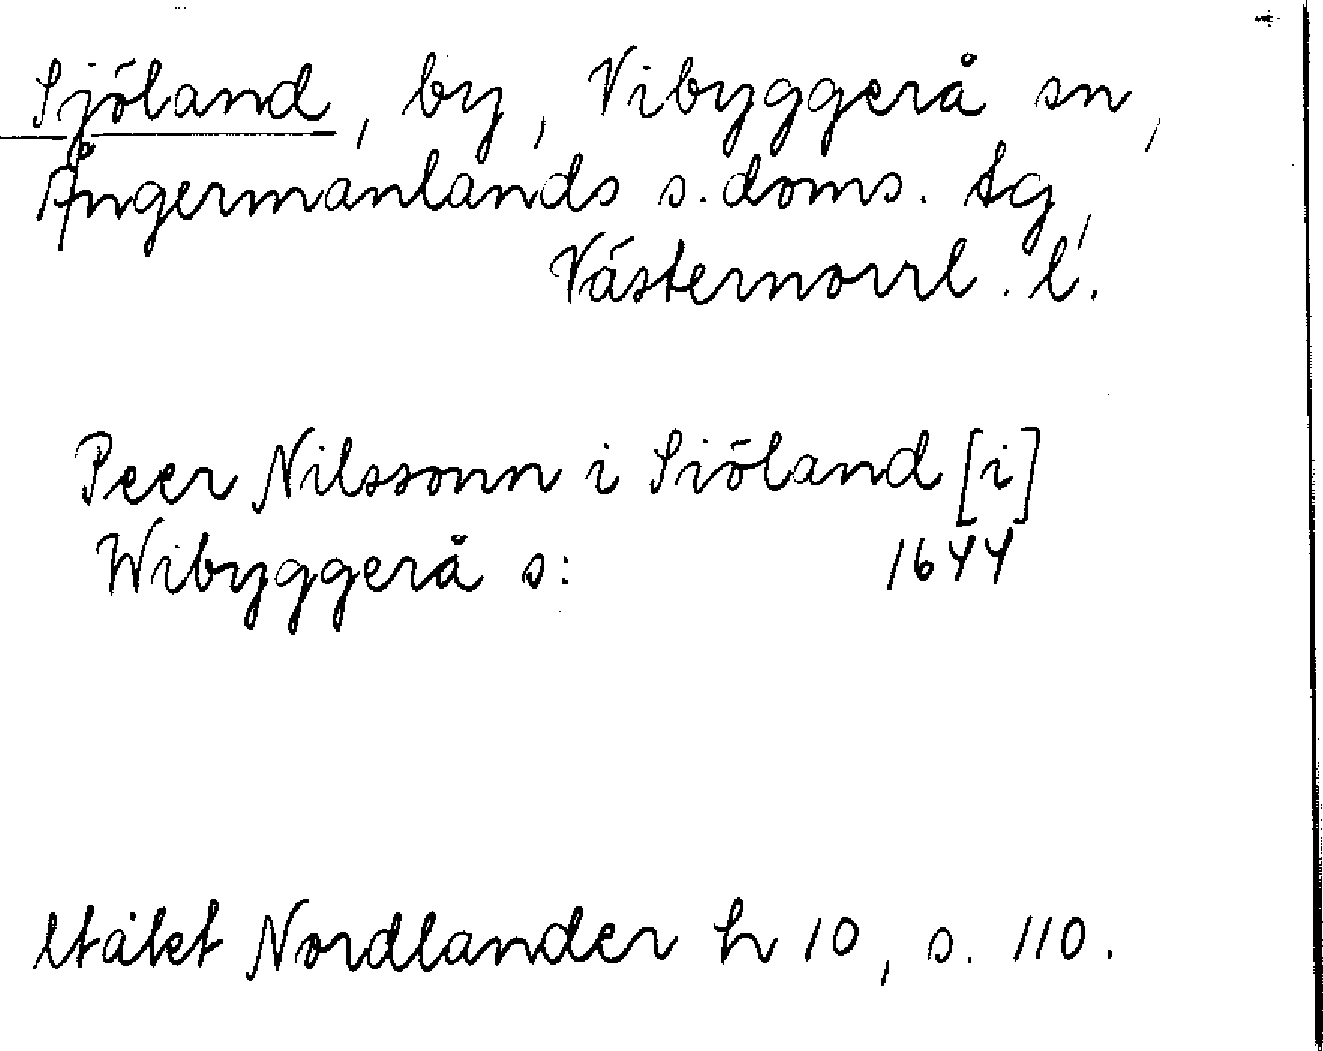 Sjöland, by, Vibyggerå sn,
Ångermanlands s. doms. tg,
Västernorrl. l.
Peer Nilssonn i Siöland [i]
Wibyggerå s: 1644
Nordlander h 10, s. 110.